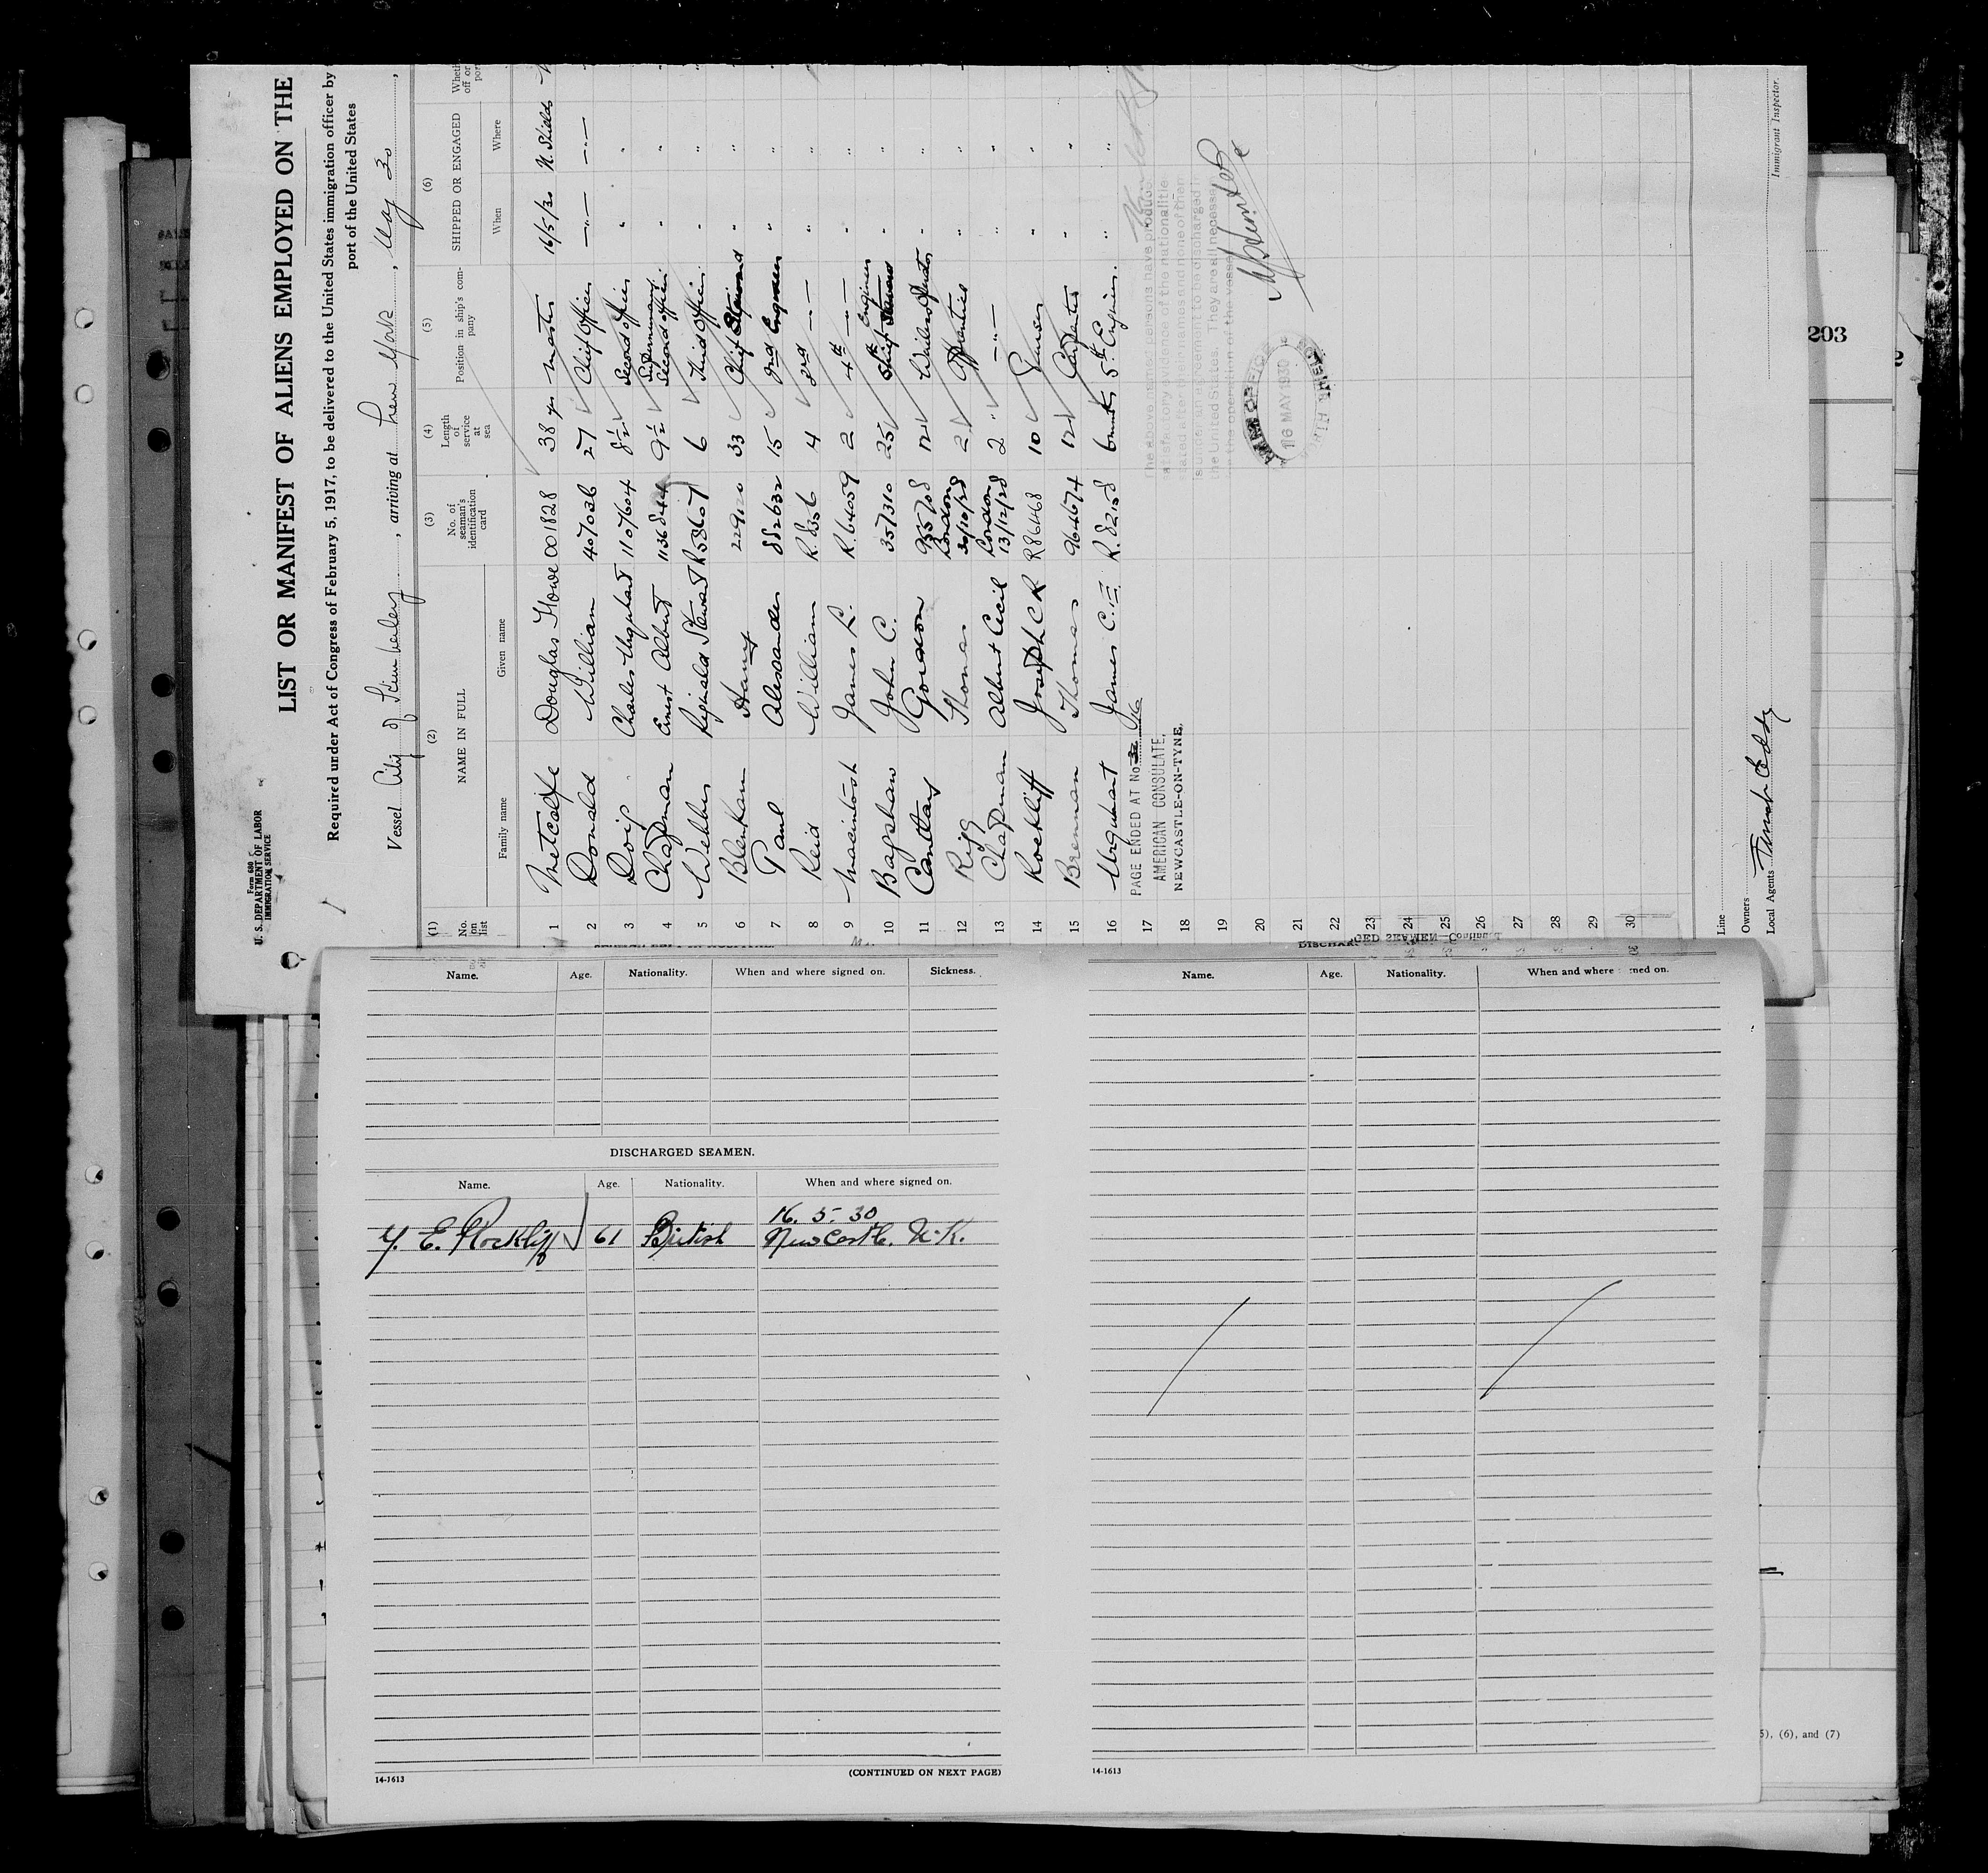 Form 680
U. S. DEPARTMENT OF LABOR
IMMIGRATION SERVICE
LIST OR MANIFEST OF ALIENS EMPLOYED ON THE
Required under Act of Congress of February 5, 1917, to be delivered to the United States immigration officer by
port of the United States
Vessel City of Kimberley, arriving at New York, May 30,
(1) (2) (3) (4) (5) (6)
No. on list NAME IN FULL No. of seaman's identification card Length of service at sea Position in ship's company SHIPPED OR ENGAGED
Family name Given name When Where
1 Metcalfe Douglas Howe 001828 38 yr Master 16/5/30 N. Shields
2 Donald William 407036 27 Chief Officer —"— —"—
3 Doig Charles Urquhart 1107604 8½ Second Officer " "
4 Chapman Ernest Albert 1136844 9½ Supernumerary Second Officer " "
5 Webber Reginald Stewart R58607 6 Third Officer " "
6 Blenkam Harry 229120 33 Chief Steward " "
7 Paul Alexander 882632 15 2nd Engineer " "
8 Reid William R.8356 4 3rd —"— " "
9 Macintosh James R. R.64059 2 4th —"— " "
10 Bagshaw John C. 357310 25 5th Engineer Chief Steward " "
11 Canttay Gordon 955708 12 Wireless Operator " "
12 Rigg Thomas London 30/10/28 2 Apprentice " "
13 Chapman Albert Cecil London 13/12/28 2 —"— " "
14 Rockliff Joseph C R R86468 10 Gunner " "
15 Brennan Thomas 964674 12 Carpenter " "
16 Urquhart James C. R.82158 6 mnths 5th Engineer. " "
17 PAGE ENDED AT No. 16
18 AMERICAN CONSULATE,
NEWCASTLE-ON-TYNE.
The above named persons have produced
satisfactory evidence of the nationalities
stated after their names and none of them
is under an agreement to be discharged in
the United States. They are all necessary
to the operation of the vessel
16 MAY 1930
19
20
21
22
23
24
25
26
27
28
29
30
Line
Owners
Local Agents
Immigrant Inspector.
203
Name. Age. Nationality. When and where signed on. Sickness.
DISCHARGED SEAMEN.
Name. Age. Nationality. When and where signed on.
16. 5. 30
J. E. Rockliff 61 British Newcastle. U.K.
14-1613 (CONTINUED ON NEXT PAGE)
DISCHARGED SEAMEN—Continued
Name. Age. Nationality. When and where signed on.
14-1613
5), (6), and (7)